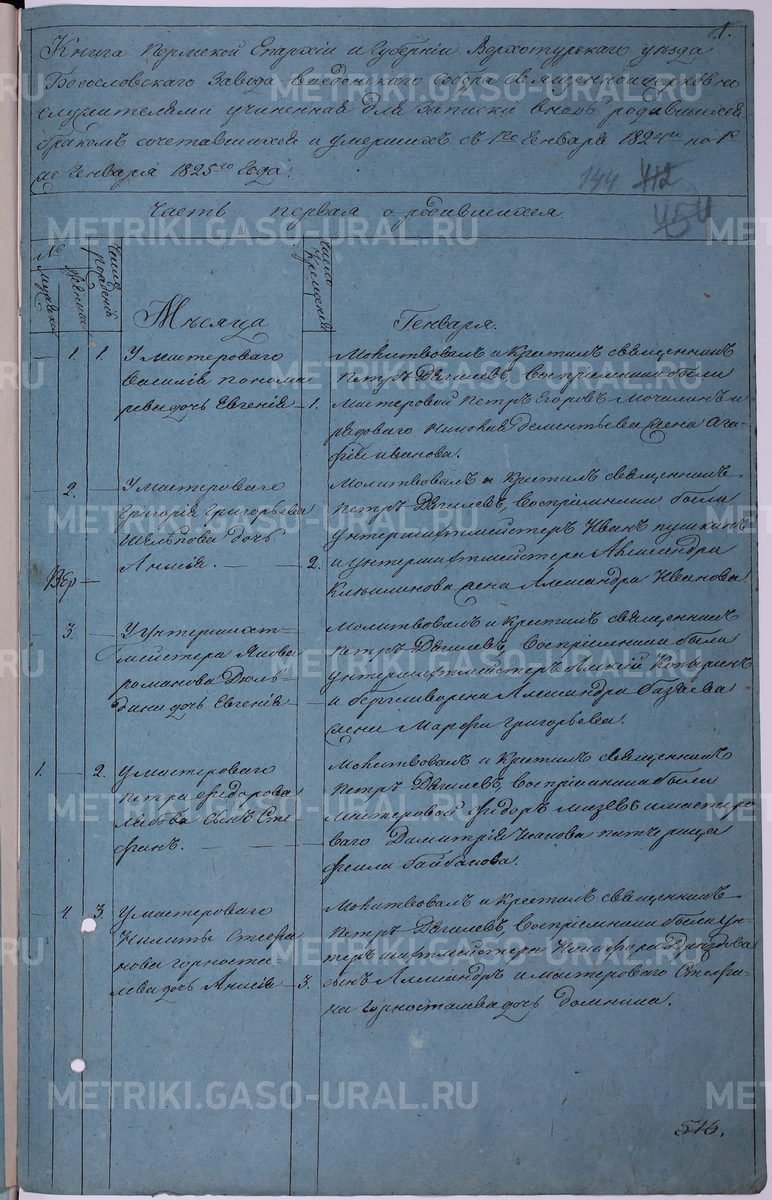 1.
Книга Пермской Епархіи и Губерніи Верхотурскаго уезда
Богословскаго Завода Введенского Собора Священноцерковно
служителями учиненная для записки оной родившихся
бракомъ сочетавшихся и умершихъ съ 1го Генваря 1824го по 1е
ое Генваря 1825го Года.
144 412
454
Часть первая о родившихся
№
мужеска
женска
Число рожденія
Число крещенія
Мѣсяца Генваря.
1. 1. У мастероваго
Василія Понома
рева дочь Евгенія 1.
Молитвовалъ и крестилъ священникъ
Петръ Дягилевъ, воспріемники были
мастеровой Петръ Егоровъ Мочалинъ и
рядоваго Дементьева жена Ага
фія Иванова.
2. У мастероваго
Григорія Григорьева
дочь
Анисія. 2.
Молитвовалъ и крестилъ священникъ
Петръ Дягилевъ, воспріемники были
унтершихтмейстеръ Иванъ Пушкинъ
и унтершихтмейстера Александра
жена Александра Иванова
Вер
3. У унтершихт
мейстера Якова
Романова
дочь Евгенія
Молитвовалъ и крестилъ священникъ
Петръ Дягилевъ, воспріемники были
унтершихтмейстеръ Алексій
и берггешворена Александра
жена Марфа Григорьева.
1. 2. У мастероваго
Петра Федорова
сынъ Сте
фанъ.
Молитвовалъ и крестилъ священникъ
Петръ Дягилевъ, воспріемники были
мастеровой Федоръ и мастеро
ваго Димитрія падчерица
Фекла Байбакова.
4. 3. У мастероваго
Никиты Стефа
нова Горноста
лева дочь Анисія 3.
Молитвовалъ и крестилъ священникъ
Петръ Дягилевъ, воспріемники были ун
тершихтмейстера Никифора Дроздова
сынъ Александръ и мастероваго Стефа
на Горносталева дочь Домника.
516.
METRIKI.GASO-URAL.RU